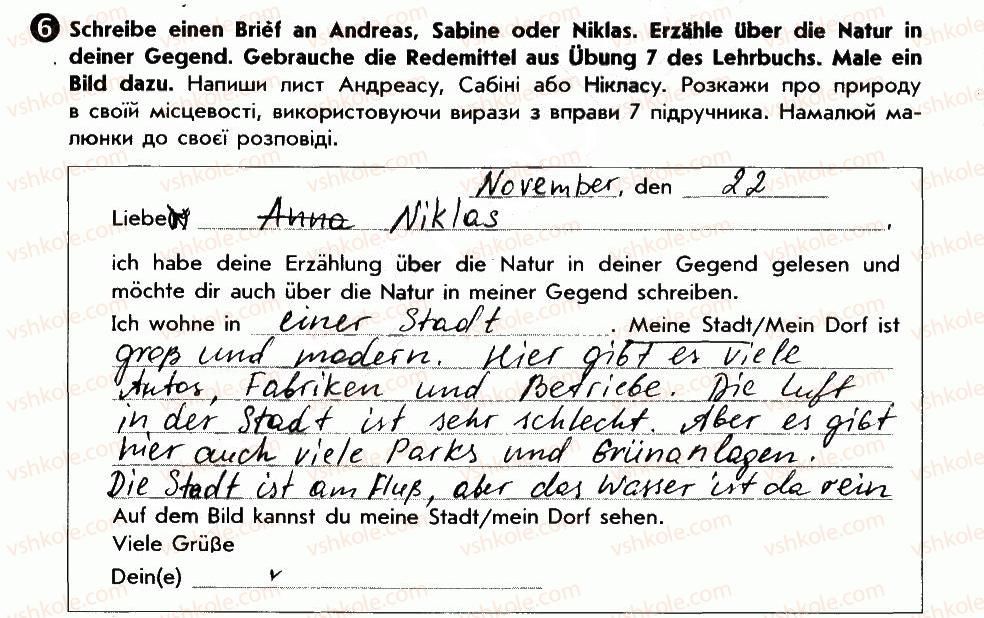 6 Schreibe einen Brief an Andreas, Sabine oder Niklas. Erzähle über die Natur in
deiner Gegend. Gebrauche die Redemittel aus Übung 7 des Lehrbuchs. Male ein
Bild dazu. Напиши лист Андреасу, Сабіні або Нікласу. Розкажи про природу
в своїй місцевості, використовуючи вирази з вправи 7 підручника. Намалюй ма-
люнки до своєї розповіді.
November, den 22
Liebe(r) Anna Niklas,
ich habe deine Erzählung über die Natur in deiner Gegend gelesen und
möchte dir auch über die Natur in meiner Gegend schreiben.
Ich wohne in einer Stadt. Meine Stadt/Mein Dorf ist
groß und modern. Hier gibt es viele
Autos, Fabriken und Betriebe. Die Luft
in der Stadt ist sehr schlecht. Aber es gibt
hier auch viele Parks und Grünanlagen.
Die Stadt ist am Fluß, aber das Wasser ist da rein
Auf dem Bild kannst du meine Stadt/mein Dorf sehen.
Viele Grüße
Dein(e)
vshkole.com